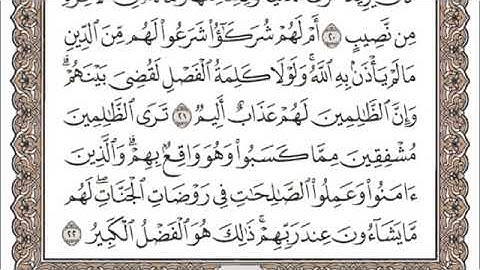 مِن نَّصِيبٍ ٢٠ أَمْ لَهُمْ شُرَكَٰٓؤُاْ شَرَعُواْ لَهُم مِّنَ ٱلدِّينِ
مَا لَمْ يَأْذَنۢ بِهِ ٱللَّهُۚ وَلَوْلَا كَلِمَةُ ٱلْفَصْلِ لَقُضِيَ بَيْنَهُمْۗ
وَإِنَّ ٱلظَّٰلِمِينَ لَهُمْ عَذَابٌ أَلِيمٌ ٢١ تَرَى ٱلظَّٰلِمِينَ
مُشْفِقِينَ مِمَّا كَسَبُواْ وَهُوَ وَاقِعُۢ بِهِمْۗ وَٱلَّذِينَ
ءَامَنُواْ وَعَمِلُواْ ٱلصَّٰلِحَٰتِ فِي رَوْضَاتِ ٱلْجَنَّاتِۖ لَهُم
مَّا يَشَآءُونَ عِندَ رَبِّهِمْۚ ذَٰلِكَ هُوَ ٱلْفَضْلُ ٱلْكَبِيرُ ٢٢